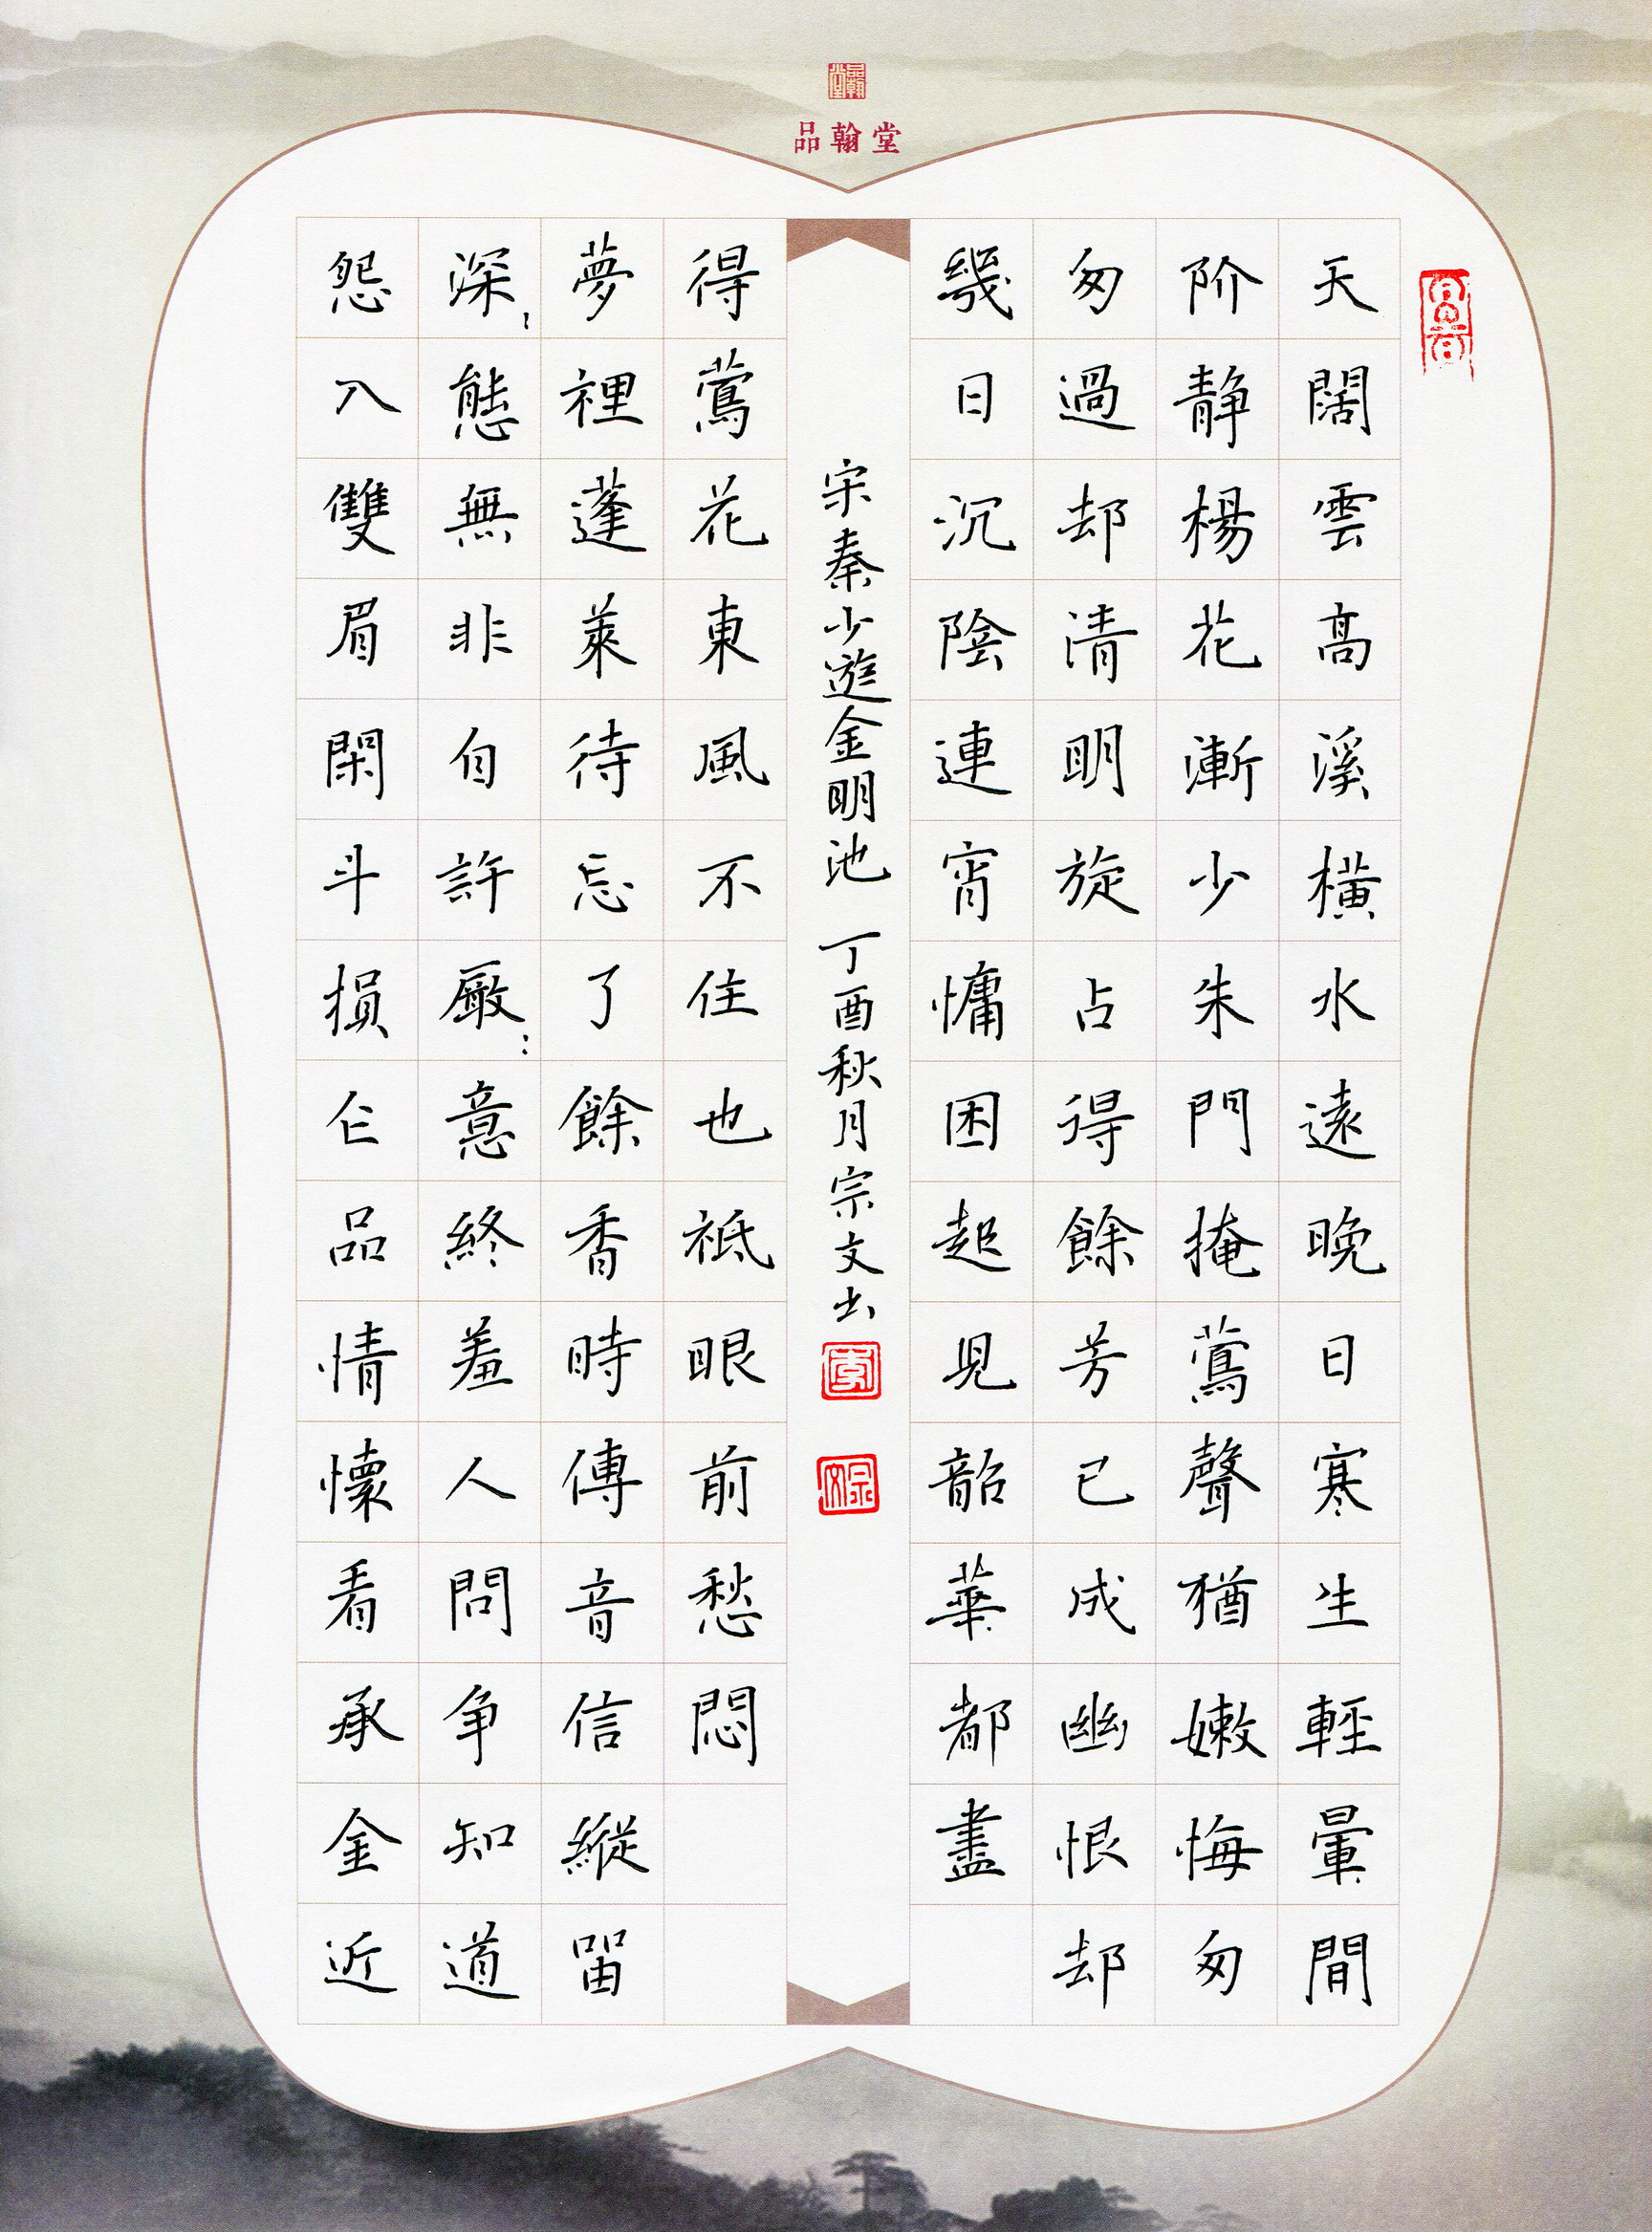 品翰堂
天闊雲高溪橫水遠晚日寒生輕暈閒
阶静楊花漸少朱門掩鶯聲猶嫩悔匆
匆過却清明旋占得餘芳已成幽恨却
幾日沉陰連宵慵困起見韶華都盡
宋秦少遊金明池 丁酉秋月宗文书
得鶯花東風不住也祗眼前愁悶
夢裡蓬萊待忘了餘香時傳音信縱留
深〻態無非自許厭〻意終羞人問争知道
怨入雙眉閑斗損仨品情懷看承金近